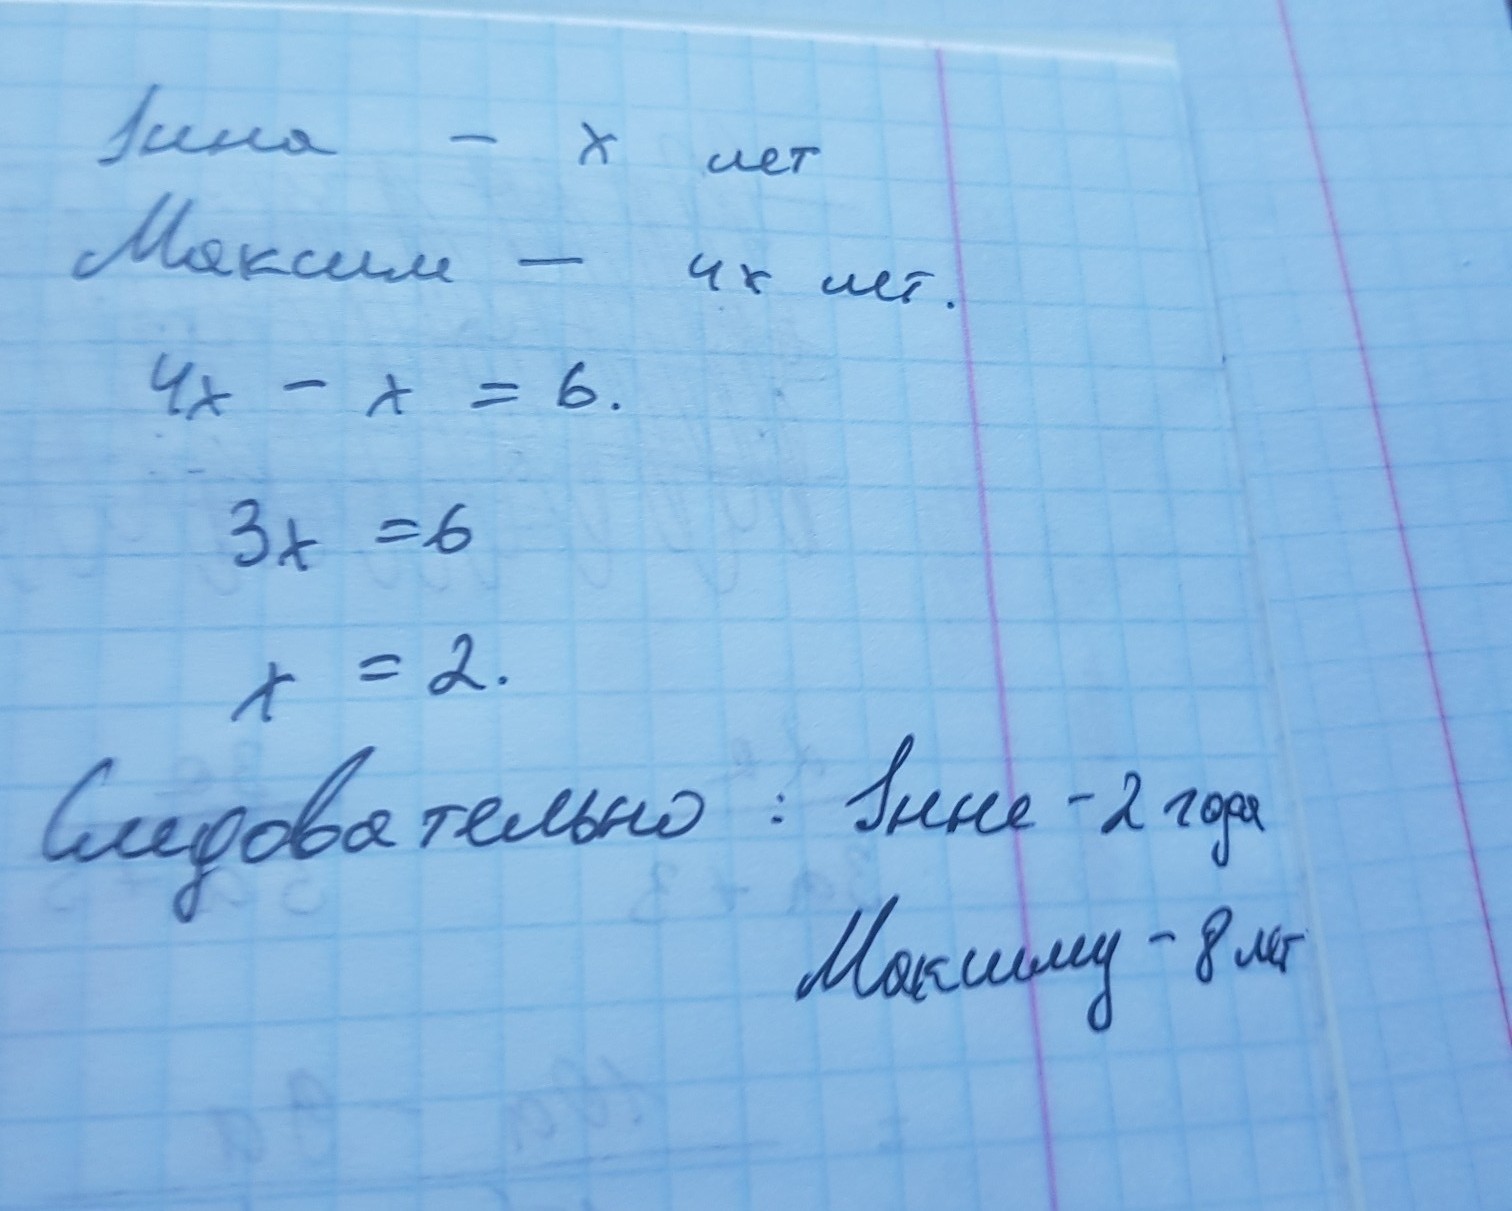 Інна - x лет
Максим - 4x лет.
4x - x = 6.
3x = 6
x = 2.
Следовательно : Інне - 2 года
Максиму - 8 лет